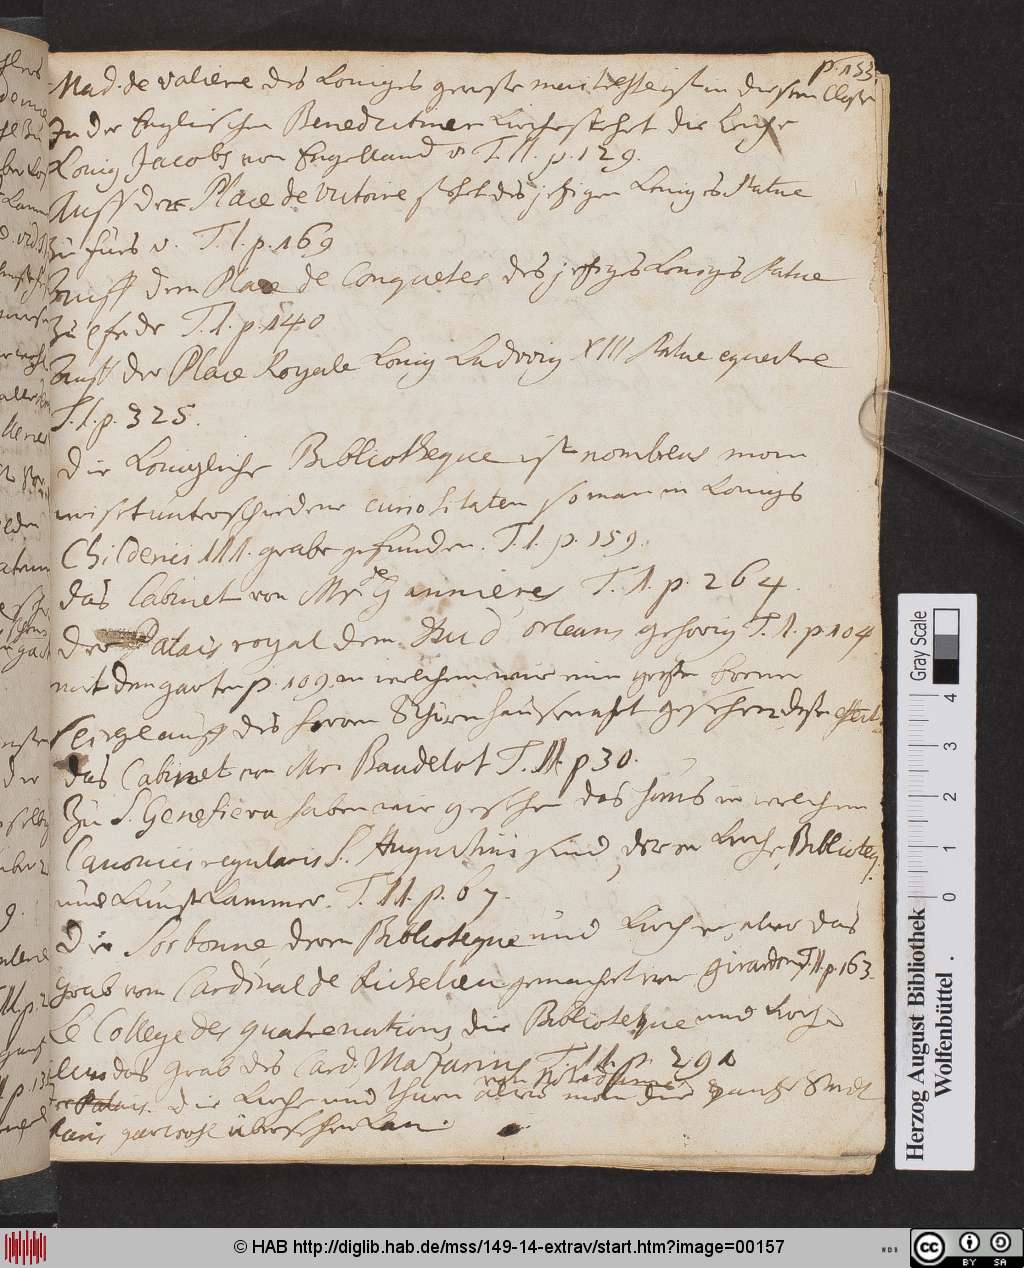 p. 153
Mad. de Valiere des Königs geweste maitresse ist in diesem Closter
In der Englischen Benedictiner Kirche stehet die Leiche
König Jacobs von Engelland v. T. II. p. 129.
Auff der Place de Victoire stehet des jetzigen Königs Statue
zu fues v. T. I. p. 169
auff dem Place de Conquetes des jetzigs Königs Statue
zu pferde T. I. p. 140
auff der Place Royale König Ludwig XIII Statue equestre
T. I. p. 325.
die Königliche Bibliotheque ist nombreus man
weiset unterschiedene curiositaten so man in Königs
Childerici III. grabe gefunden. T. I. p. 159.
das Cabinet von Mr. de Gannieres T. I. p. 264.
der Palais royal dem Duc d'orleans gehörig T. I. p. 104
mit dem garten p. 109. in welchem wir ein
des Herren gesehen
das Cabinet von Mr. Baudelot T. II. p 30.
Zu S. Genefieva haben wir gesehen das haus in welchem
Canonici regularis S. Augustini sind, deren Kirche, Biblioteq.
und Kunstkammer. T. II. p. 67.
Die Sorbonne, deren Biblioteque und Kirche, alwo das
grab vom Cardinal de Richelieu gemachet von Girardon T. II p. 163.
Le College des quatre nations die Bibliotheque und Kirche
das grab des Card. Mazarins T. II. p. 291
die Kirche und thurn von Notre dame alwo man die gantze Stadt
Paris gar wohl übersehen kan.
Gray Scale
0 1 2 3 4
Herzog August Bibliothek
Wolfenbüttel .
© HAB http://diglib.hab.de/mss/149-14-extrav/start.htm?image=00157
cc BY SA